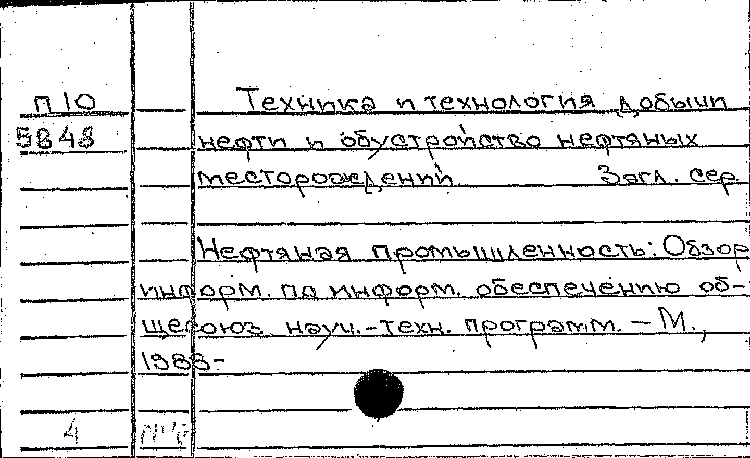 П 10 Техника и технология добычи
5848 нефти и обустройство нефтяных
месторождений Загл. сер.
Нефтяная промышленность: Обзор
информ. по информ. обеспечению об-
щесоюз. науч.-техн. программ. — М.,
1988-
4